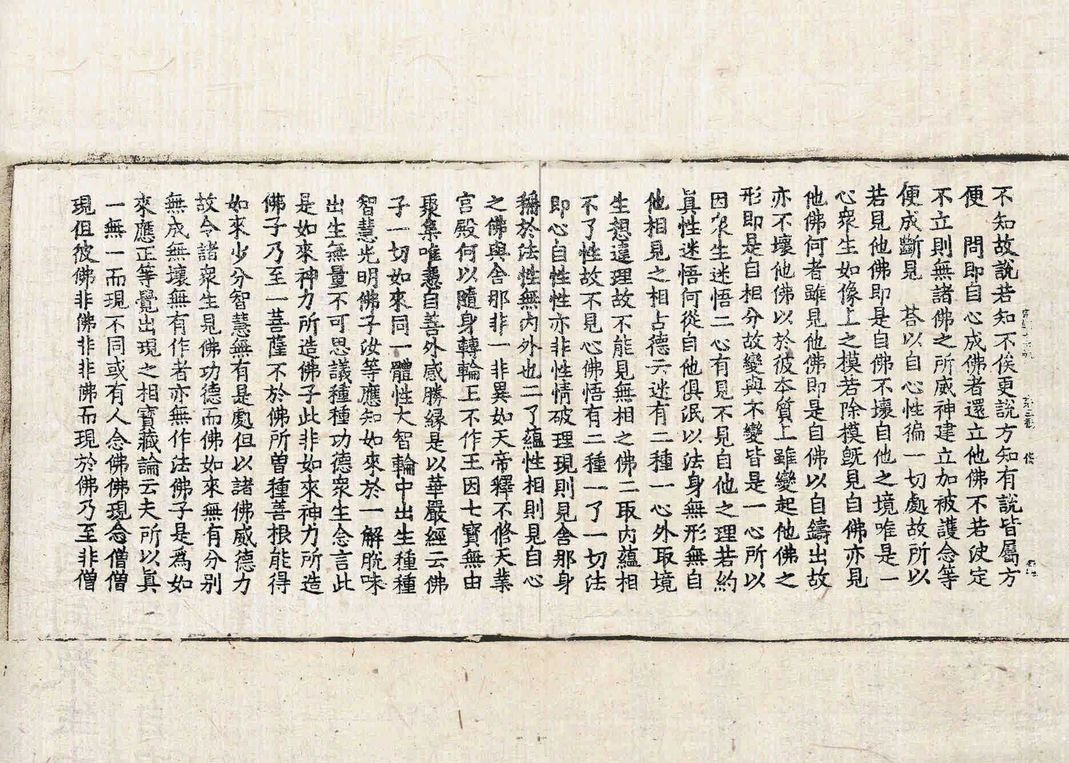 不知故說若知不俟更說方知有說皆屬方
便　問即自心成佛者還立他佛不若決定
不立則無諸佛之所威神建立加被護念等
便成斷見　荅以自心性徧一切處故所以
若見他佛即是自佛不壞自他之境唯是一
心衆生如像上之模若除模旣見自佛亦見
他佛何者雖見他佛即是自佛以自鑄出故
亦不壞他佛以於彼本質上雖變起他佛之
形即是自相分故變與不變皆是一心所以
因衆生迷悟二心有見不見自他之理若約
眞性迷悟何從自他俱泯以法身無形無自
他相見之相占德云迷有二種一心外取境
生想違理故不能見無相之佛二取内蘊相
不了性故不見心佛悟有二種一了一切法
即心自性性亦非性情破理現則見舍那身
稱於法性無内外也二了蘊性相則見自心
之佛與舍那非一非異如天帝釋不修天業
宮殿何以隨身轉輪王不作王因七寶無由
聚集唯慿自善外感勝縁是以華嚴經云佛
子一切如來同一體性大智輪中出生種種
智慧光明佛子汝等應知如來於一解脫味
出生無量不可思議種種功德衆生念言此
是如來神力所造佛子此非如來神力所造
佛子乃至一菩薩不於佛所曽種善根能得
如來少分智慧無有是處但以諸佛威德力
故令諸衆生見佛功德而佛如來無有分别
無成無壞無有作者亦無作法佛子是爲如
來應正等覺出現之相寶藏論云夫所以眞
一無一而現不同或有人念佛佛現念僧僧
現但彼佛非佛非非佛而現於佛乃至非僧